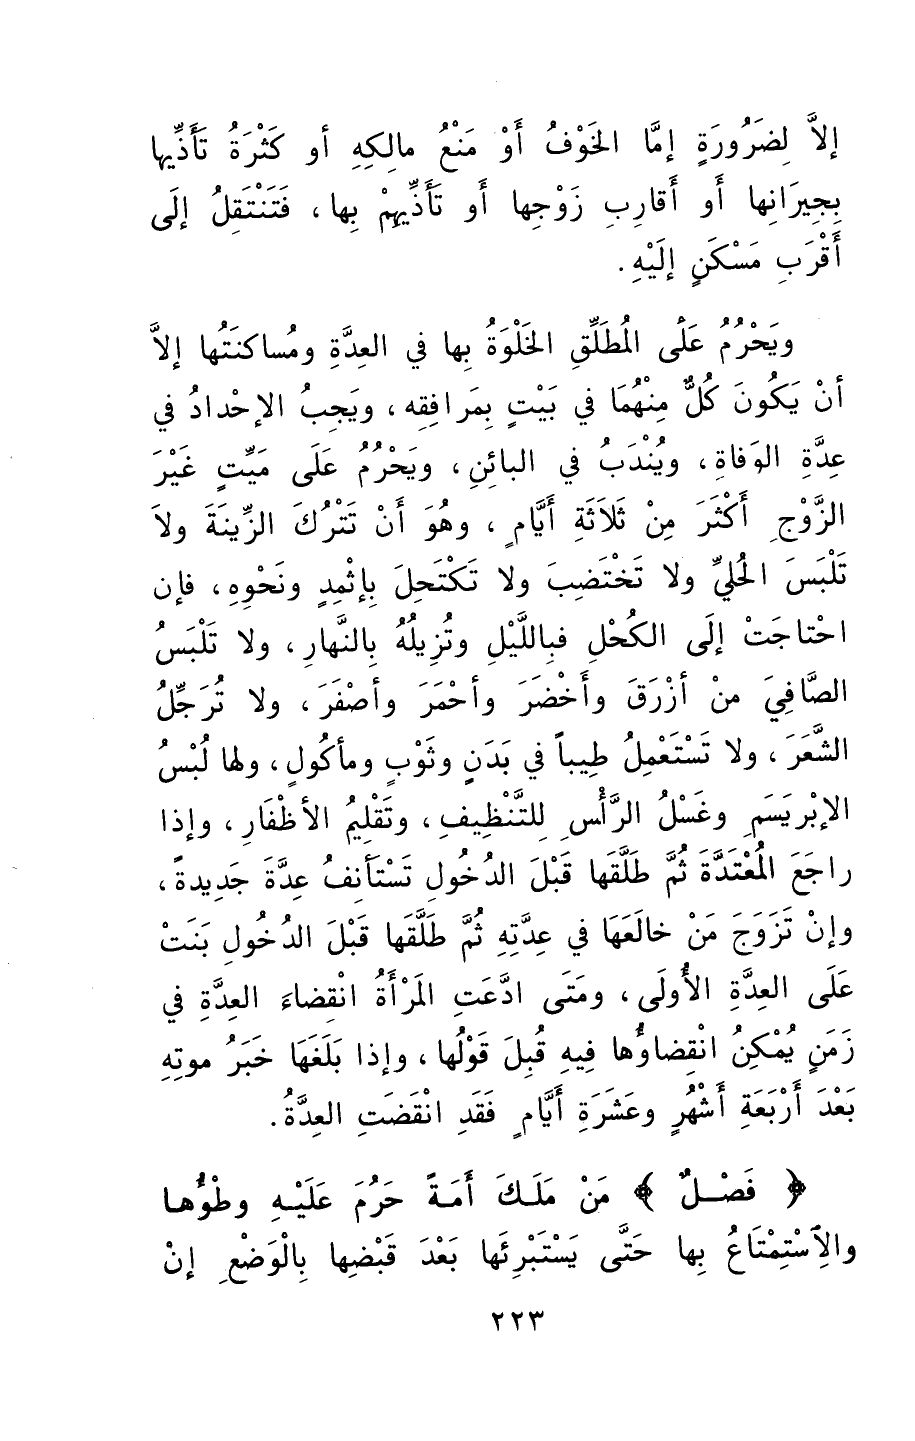 إلاَّ لِضَرُورَةٍ إمَّا الخَوْفُ أَوْ مَنْعُ مالِكِهِ أو كَثْرَةُ تَأَذِّيها
بِجِيرَانِها أو أَقارِبِ زَوْجِها أو تَأَذِّيهِمْ بِها ، فَتَنْتَقِلُ إلَى
أَقْرَبِ مَسْكَنٍ إلَيْهِ .
ويَحْرُمُ عَلَى المُطَلِّقِ الخَلْوَةُ بِها في العِدَّةِ ومُساكنَتُها إلاَّ
أنْ يَكُونَ كُلٌّ مِنْهُمَا في بَيْتٍ بِمَرافِقِه ، ويَجِبُ الإحْدادُ في
عِدَّةِ الوَفاةِ ، ويُنْدَبُ في البائِنِ ، ويَحْرُمُ عَلَى مَيِّتٍ غَيْرَ
الزَّوْجِ أَكْثَرَ مِنْ ثَلَاثَةِ أَيَّامٍ ، وهُوَ أَنْ تَتْرُكَ الزِّينَةَ ولاَ
تَلْبَسَ الحُليِّ ولا تَخْتَضِبَ ولا تَكْتَحِلَ بِإثْمِدٍ ونَحْوِهِ ، فإن
احْتاجَتْ إلَى الكُحْلِ فبِاللَّيْلِ وتُزِيلُهُ بِالنَّهارِ ، ولا تَلْبَسُ
الصَّافِيَ منْ أزْرَقَ وأَخْضَرَ وأحْمَرَ وأصْفَرَ ، ولا تُرَجِّلُ
الشَّعَرَ ، ولا تَسْتَعْمِلُ طِيباً في بَدَنٍ وثَوْبٍ ومأكُولٍ ، ولها لُبْسُ
الإبْرِيَسَمِ وغَسْلُ الرَّأْسِ لِلتَّنْظِيفِ ، وتَقْلِيمُ الأظْفَارِ ، وإذا
راجَعَ المُعْتَدَّةَ ثُمَّ طَلَّقَها قَبْلَ الدُخُولِ تَسْتَأنِفُ عِدَّةَ جَدِيدةً ،
وإنْ تَزَوَجَ مَنْ خالَعَهَا في عِدَّتِهِ ثُمَّ طَلَّقَها قَبْلَ الدُخُولِ بَنَتْ
عَلَى العِدَّةِ الأُولَى ، ومَتَى ادَّعَتِ المَرْأَةُ انْقِضاءَ العِدَّةِ في
زَمَنٍ يُمْكِنُ انْقِضاؤُها فِيهِ قُبِلَ قَوْلُها ، وإذا بَلَغَهَا خَبَرُ موتِهِ
بَعْدَ أَرْبَعَةِ أَشْهُرٍ وعَشَرَةِ أَيَّامٍ فَقَدِ انْقَضَتِ العِدَّةُ .
﴿ فَصْـلٌ ﴾ مَنْ مَلَـكَ أَمَـةً حَرُمَ عَلَيْـهِ وطْؤُهـا
والِاسْتِمْتَاعُ بِها حَتَّى يَسْتَبْرِئَها بَعْدَ قَبْضِها بِالْوَضْعِ إنْ
٢٢٣